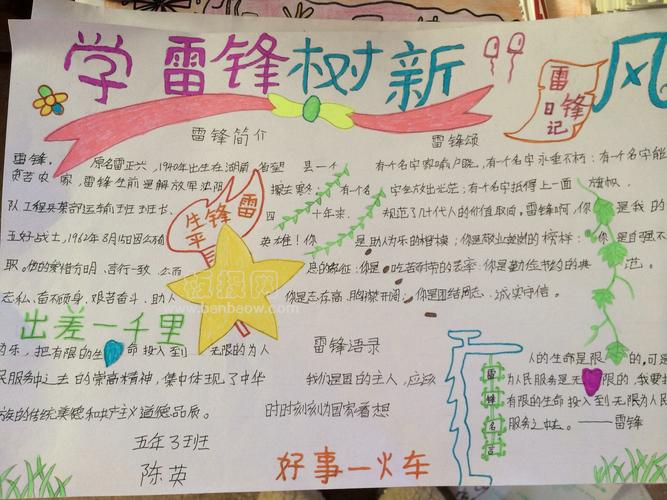 学雷锋树新风
雷锋日记
雷锋简介
雷锋颂
雷锋.原名雷正兴,1940年出生在湖南省望
县一个
贫苦农家,雷锋生前是解放军沈阳
队工程兵某部运输班班长.
五好战士,1962年8月15日因公
取.他的爱憎分明.言行一致.公而
忘私.奋不顾身.艰苦奋斗.助人
为乐,把有限的生命投入到无限的为人
民服务中去的崇高精神,集中体现了中华
族的传统美德和共产主义道德品质.
雷锋生平
有个名字家喻户晓,有个名字永垂不朽:有个名字能
有个名字放出光芒:有个名字抵得上一面旗帜.
四十年来.规范了几代人的价值取向,雷锋啊,你是我的
英雄!你是助人为乐的楷模;你是敬业的榜样:你是自强不
息的象征:你是吃苦耐劳的;你是勤俭节约的典范.
你是志存高胸襟开阔;你是团结同志.诚实守信.
出差一千里
雷锋语录
我们是国的主人,应该
时时刻刻为国家着想
雷锋名言
人的生命是有限的,可是
为人民服务是无限的,我要把
有限的生命投入到无限为人民
服务之中去.——雷锋
板报网
www.banbaow.com
五年3班
陈英
好事一火车